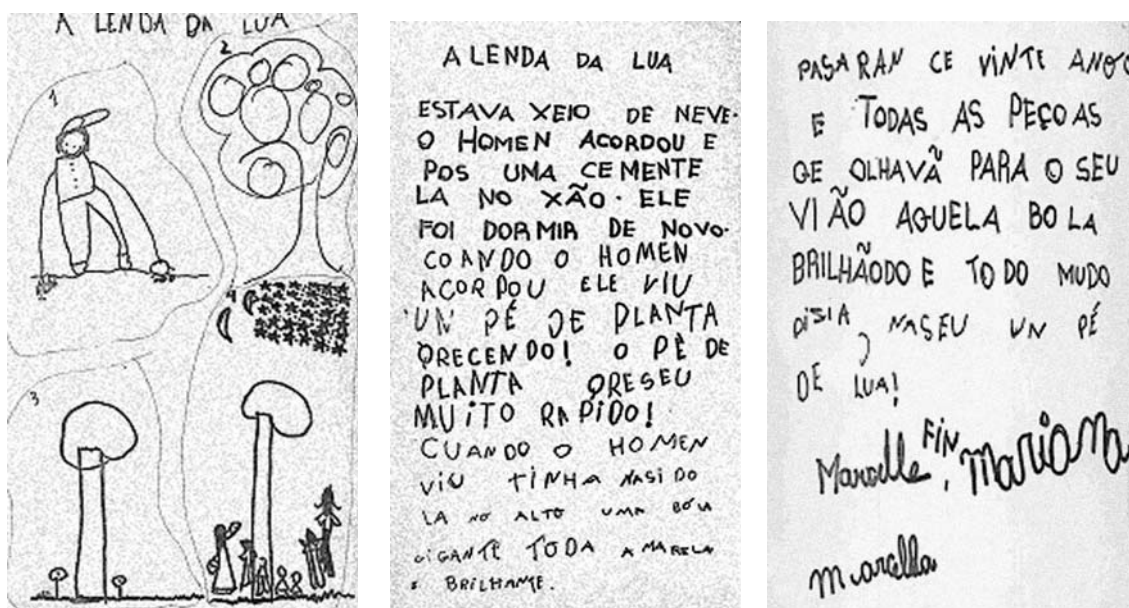 A LENDA DA LUA
1
2
3
4
A LENDA DA LUA
ESTAVA XEIO DE NEVE.
O HOMEN ACORDOU E
POS UMA CEMENTE
LA NO XÃO. ELE
FOI DORMIR DE NOVO.
COANDO O HOMEN
ACORDOU ELE VIU
UN PÉ DE PLANTA
QRECENDO! O PÉ DE
PLANTA QRESEU
MUITO RAPIDO!
CUANDO O HOMEN
VIU TINHA NASIDO
LA NO ALTO UMA BOLA
GIGANTE TODA AMARELA
E BRILHANTE.
PASARAN CE VINTE ANOS
E TODAS AS PEÇOAS
QE OLHAVÃ PARA O SEU
VIÃO AQUELA BOLA
BRILHÃODO E TODO MUDO
DISIA, NASEU UN PÉ
DE LUA!
FIN
Marcelle, Mariana
Marcella